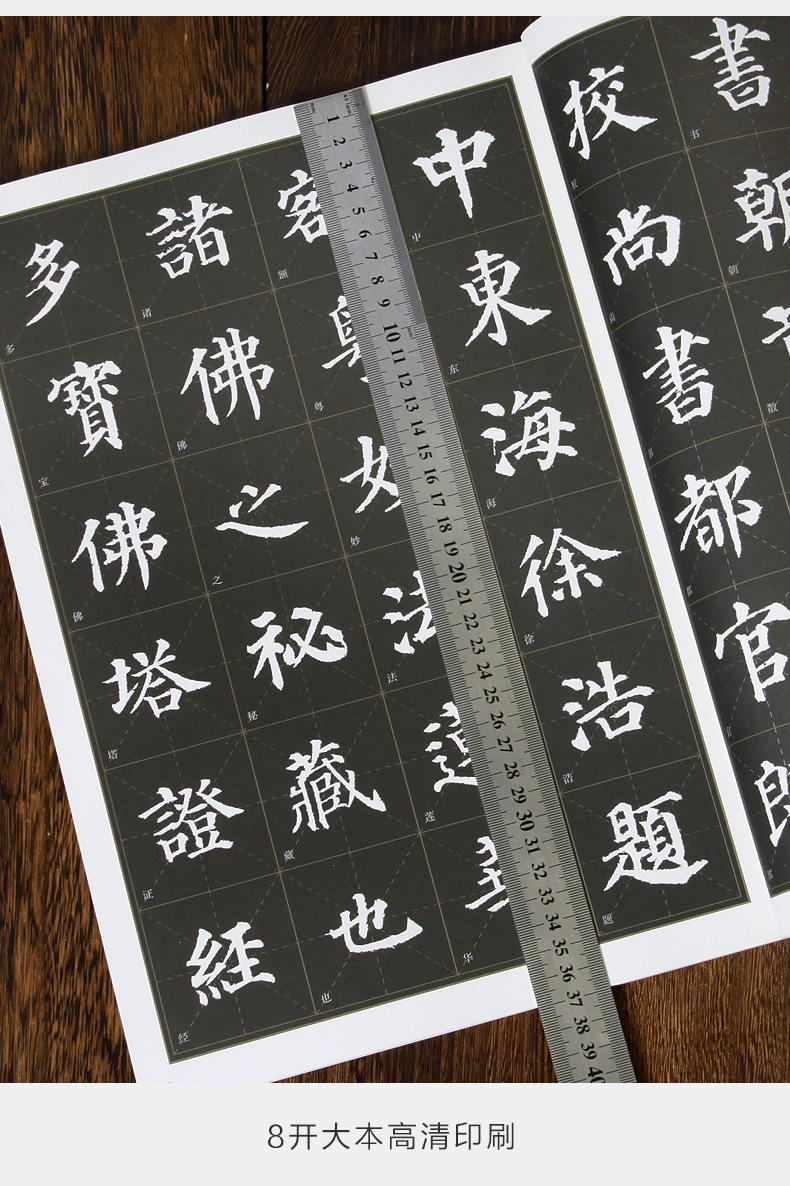 書朝
书朝散
挍尚書都官郎
中東海徐浩題
中东海徐浩题
額粵妙法蓮華
额粤妙法莲华
諸佛之秘藏也
诸佛之秘藏也
多寶佛塔證經
多宝佛塔证经
1 2 3 4 5 6 7 8 9 10 11 12 13 14 15 16 17 18 19 20 21 22 23 24 25 26 27 28 29 30 31 32 33 34 35 36 37 38 39 40
8开大本高清印刷